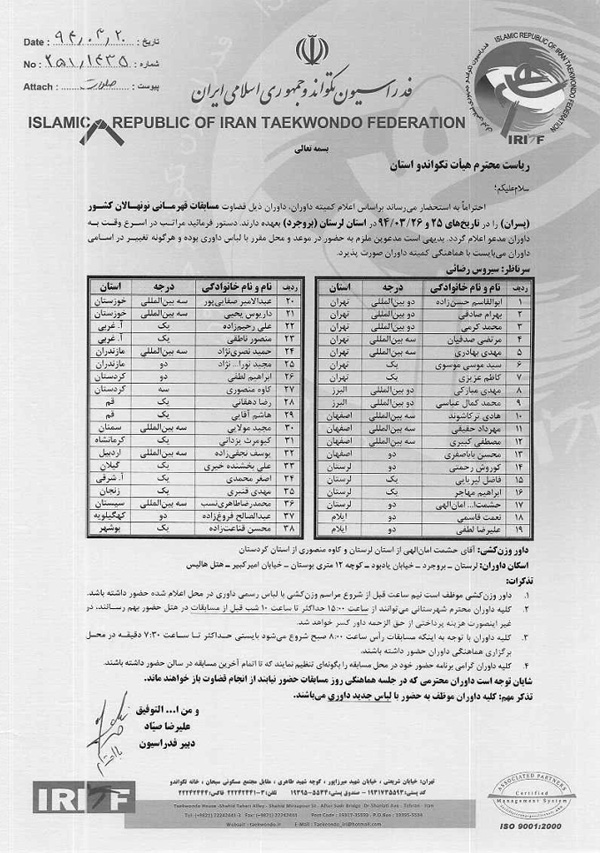 Date : ۹۴,۳,۲۰ تاریخ :
No : ۲۵۱,۱۴۳۵ شماره :
Attach : پیوست :
فدراسیون تکواندو جمهوری اسلامی ایران
ISLAMIC REPUBLIC OF IRAN TAEKWONDO FEDERATION
ISLAMIC REPUBLIC OF IRAN TAEKWONDO FEDERATION
IRITF
بسمه تعالی
ریاست محترم هیأت تکواندو استان
سلام علیکم؛
احتراماً به استحضار می‌رساند براساس اعلام کمیته داوران، داوران ذیل قضاوت مسابقات قهرمانی نونهالان کشور
(پسران) را در تاریخ‌های ۲۵ و ۹۴/۰۳/۲۶ در استان لرستان (بروجرد) بعهده دارند. دستور فرمائید مراتب در اسرع وقت به
داوران مدعو اعلام گردد. بدیهی است مدعوین ملزم به حضور در موعد و محل مقرر با لباس داوری بوده و هرگونه تغییر در اسامی
داوران می‌بایست با هماهنگی کمیته داوران صورت پذیرد.
سرناظر: سیروس رضائی
ردیف نام و نام خانوادگی درجه استان
۱ ابوالقاسم حسن‌زاده دو بین‌المللی تهران
۲ بهرام صادقی دو بین‌المللی تهران
۳ محمد کرمی دو بین‌المللی تهران
۴ مرتضی صدقیان سه بین‌المللی تهران
۵ مهدی بهادری سه بین‌المللی تهران
۶ سید موسی موسوی یک تهران
۷ کاظم عزیزی یک تهران
۸ مهدی مبارکی دو بین‌المللی البرز
۹ محمد کمال عباسی دو بین‌المللی البرز
۱۰ هادی ترکاشوند سه بین‌المللی اصفهان
۱۱ مهرداد حقیقی سه بین‌المللی اصفهان
۱۲ مصطفی کبیری سه بین‌المللی اصفهان
۱۳ محسن باباصفری دو اصفهان
۱۴ کوروش رحمتی دو لرستان
۱۵ فاضل لیریایی یک لرستان
۱۶ ابراهیم مهاجر یک لرستان
۱۷ حشمت‌ا... امان‌الهی دو لرستان
۱۸ نعمت قاسمی دو ایلام
۱۹ علیرضا لطفی دو ایلام
ردیف نام و نام خانوادگی درجه استان
۲۰ عبدالامیر صفایی‌پور سه بین‌المللی خوزستان
۲۱ داریوس یحیی سه بین‌المللی خوزستان
۲۲ علی رحیم‌زاده یک آ. غربی
۲۳ منصور ناطقی یک آ. غربی
۲۴ حمید نصری‌نژاد سه بین‌المللی مازندران
۲۵ مجید نورا... نژاد دو مازندران
۲۶ ابراهیم لطفی دو کردستان
۲۷ کاوه منصوری سه کردستان
۲۸ رضا دهقانی یک قم
۲۹ هاشم آقایی یک قم
۳۰ مجید مولایی سه بین‌المللی سمنان
۳۱ کیومرث یزدانی یک کرمانشاه
۳۲ یوسف نجفی‌زاده سه بین‌المللی اردبیل
۳۳ علی بخشنده خبری یک گیلان
۳۴ اصغر محمدی یک آ. شرقی
۳۵ مهدی قنبری یک زنجان
۳۶ محمدرضا طاهری‌نسب سه بین‌المللی سیستان
۳۷ عبدالصالح فروغ‌زاده دو کهگیلویه
۳۸ محسن قناعت‌زاده یک بوشهر
داور وزن‌کشی: آقای حشمت امان‌الهی از استان لرستان و کاوه منصوری از استان کردستان
اسکان داوران: لرستان – بروجرد – خیابان یادبود – کوچه ۱۲ متری بوستان – خیابان امیرکبیر – هتل هالیس
تذکرات:
۱. داور وزن‌کشی موظف است نیم ساعت قبل از شروع مراسم وزن‌کشی با لباس رسمی داوری در محل اعلام شده حضور داشته باشد.
۲. کلیه داوران محترم شهرستانی می‌توانند از ساعت ۱۵:۰۰ حداکثر تا ساعت ۱۰ شب قبل از مسابقات در هتل حضور بهم رسانند، در
غیر اینصورت هزینه پرداختی از حق الزحمه داور کسر خواهد شد.
۳. کلیه داوران با توجه به اینکه مسابقات رأس ساعت ۸:۰۰ صبح شروع می‌شود بایستی حداکثر تا ساعت ۷:۳۰ دقیقه در محل
برگزاری هماهنگی داوران حضور داشته باشند.
۴. کلیه داوران گرامی برنامه حضور خود در محل مسابقه را بگونه‌ای تنظیم نمایند که تا اتمام آخرین مسابقه در سالن حضور داشته باشند.
شایان توجه است داوران محترمی که در جلسه هماهنگی روز مسابقات حضور نیابند از انجام قضاوت باز خواهند ماند.
تذکر مهم: کلیه داوران موظف به حضور با لباس جدید داوری می‌باشند.
و من ا... التوفیق
علیرضا صیّاد
دبیر فدراسیون
IRITF
تهران، خیابان شریعتی، خیابان شهید میرزاپور، کوچه شهید طاهری، مقابل مجتمع مسکونی سبحان، خانه تکواندو
کد پستی: ۱۹۳۱۷۳۵۵۹۳ صندوق پستی: ۵۵۳۴-۱۹۳۹۵ تلفن: ۳-۲۲۲۴۲۴۴۱ فاکس: ۲۲۲۴۲۴۴۴
Webset : Taekwondo.ir E-MAIL : Taekwondo_iri@hotmail.com
ASSOCIATED PARTNERS
Certified
Management System
ISO 9001:2000